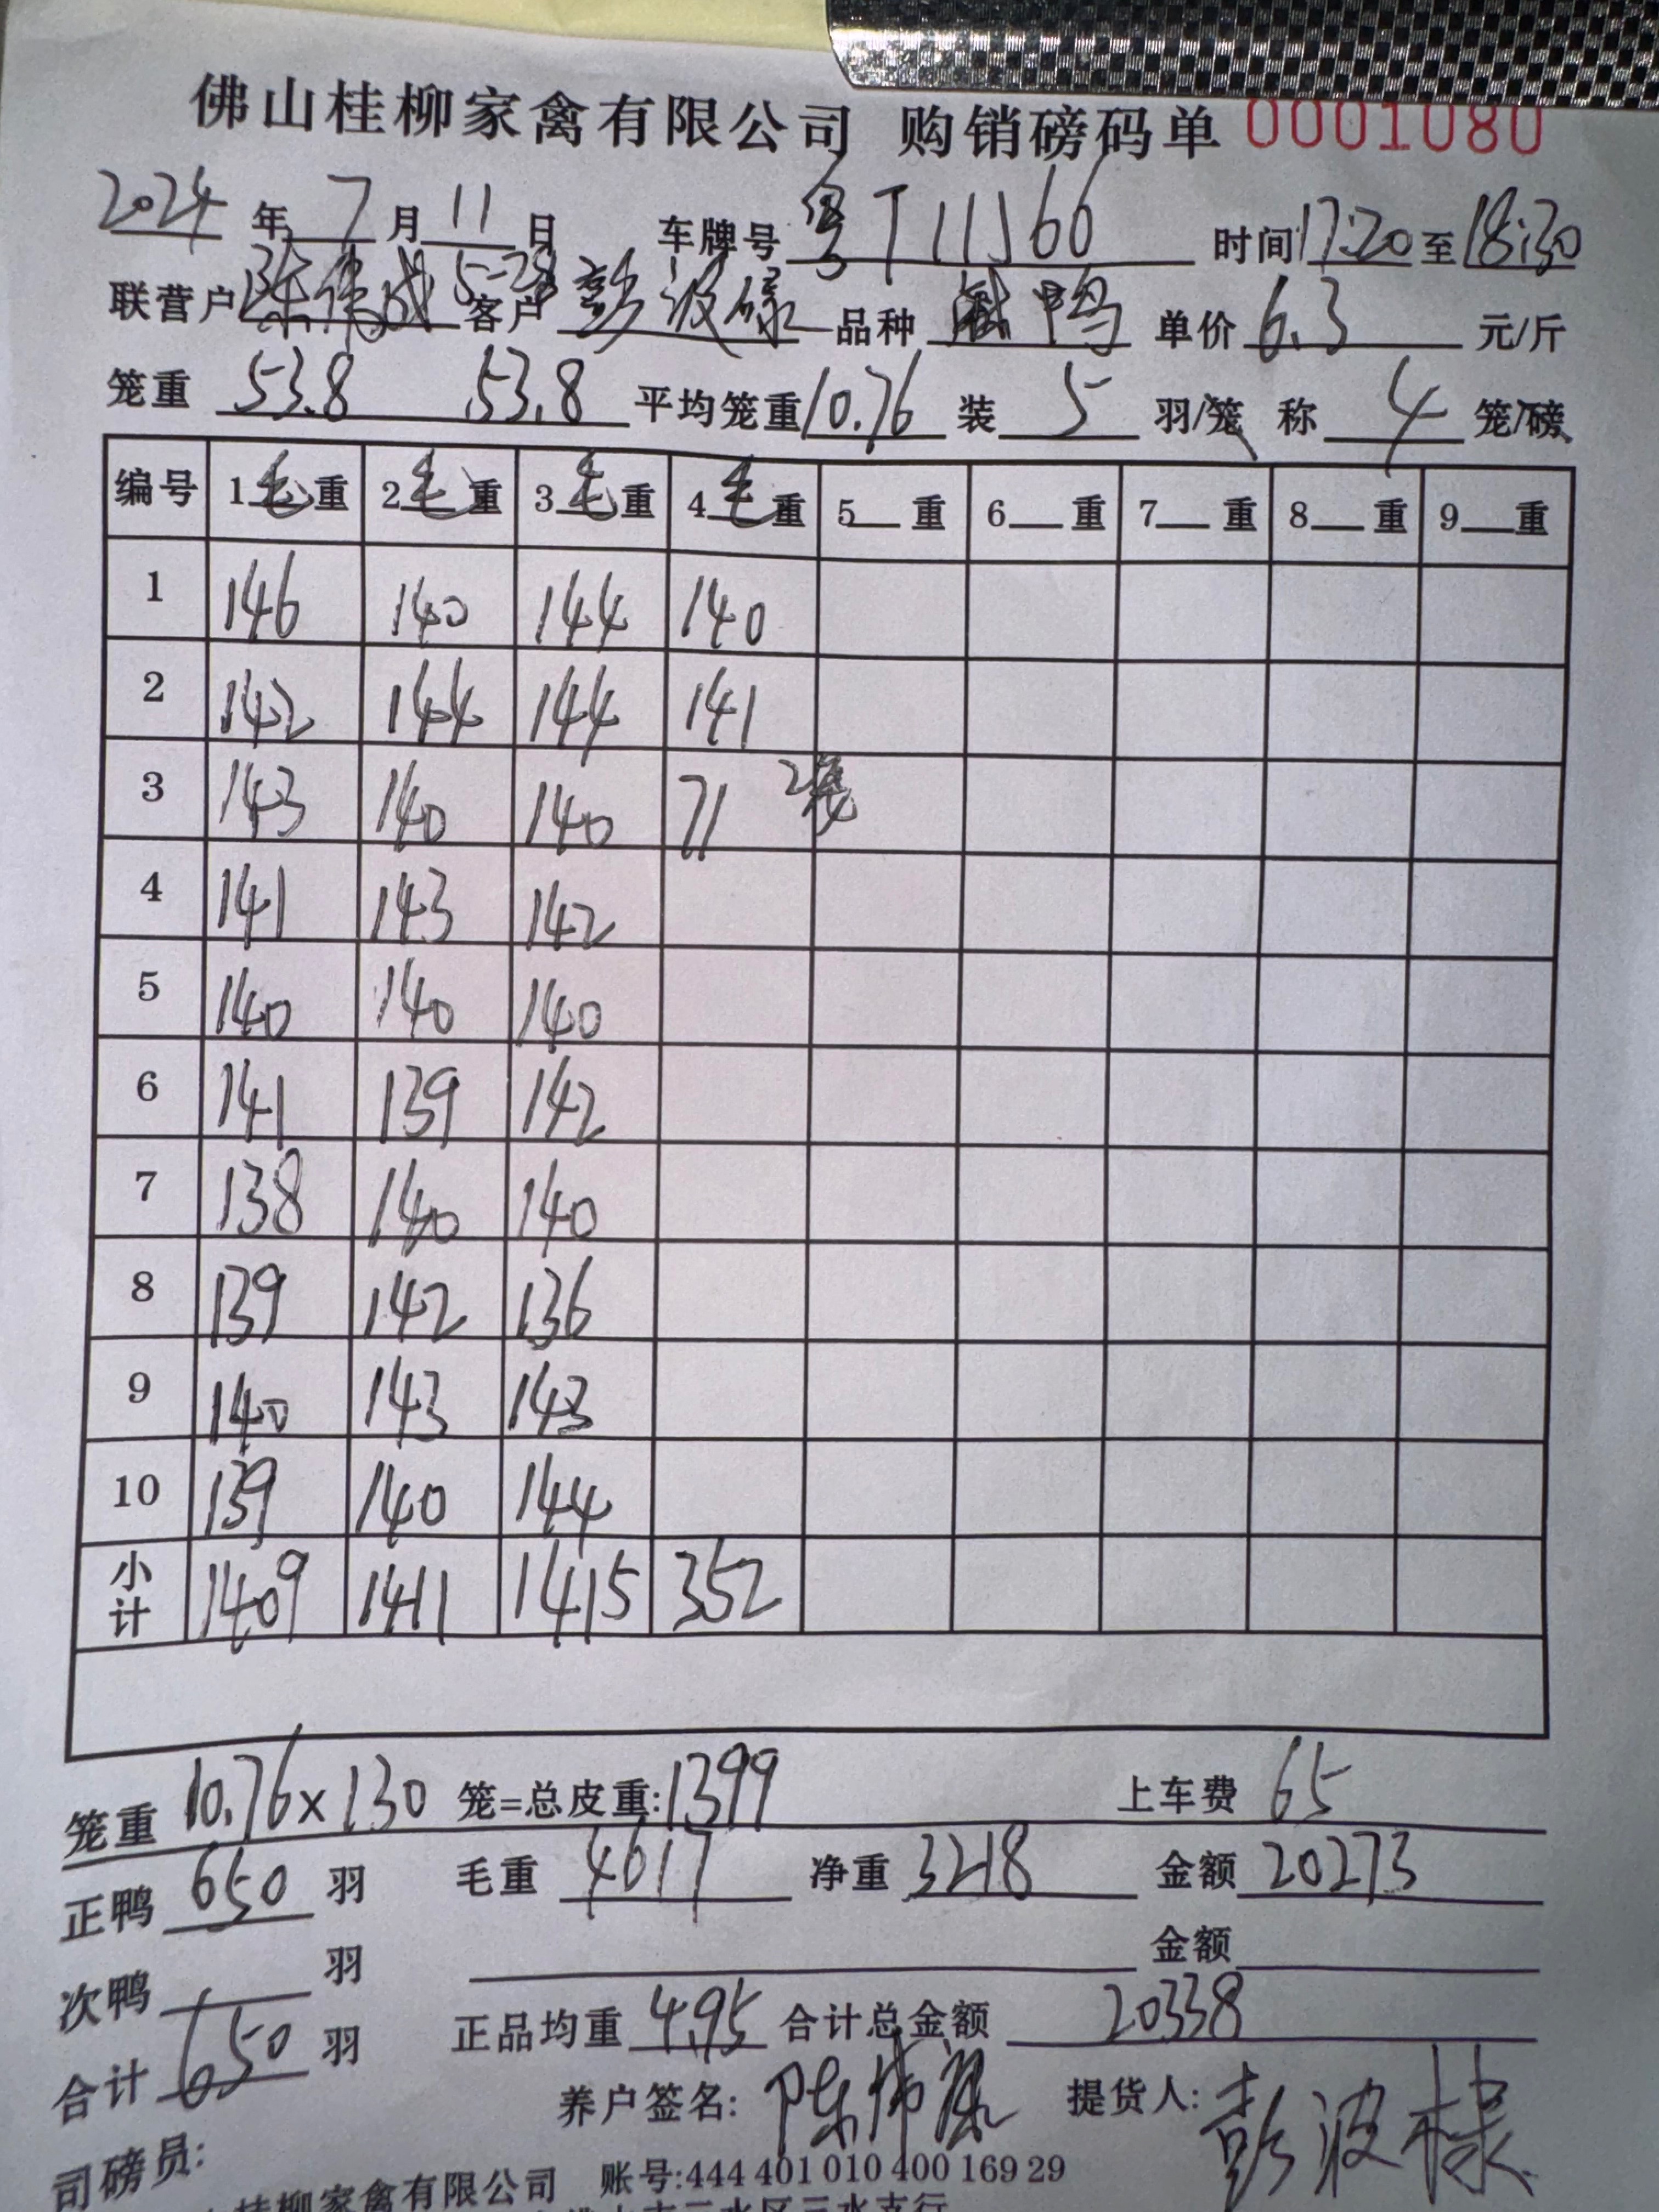 佛山桂柳家禽有限公司 购销磅码单 0001080
2024 年 7 月 11 日 车牌号 粤T11J66 时间 17:20 至 18:30
联营户 陈伟成 5-28 客户 彭波 品种 鸭 单价 6.3 元/斤
笼重 53.8 53.8 平均笼重 10.76 装 5 羽/笼 称 4 笼/磅
编号 1毛重 2毛重 3毛重 4毛重 5__重 6__重 7__重 8__重 9__重
1 146 140 144 140
2 142 144 144 141
3 143 140 140 71 2笼
4 141 143 142
5 140 140 140
6 141 139 142
7 138 140 140
8 139 142 136
9 140 143 143
10 139 140 144
小计 1409 1411 1415 352
笼重 10.76x130 笼=总皮重:1399 上车费 65
正鸭 650 羽 毛重 4617 净重 3218 金额 20273
次鸭 羽 金额
合计 650 羽 正品均重 4.95 合计总金额 20338
养户签名: 陈伟 提货人: 彭波
司磅员:
桂柳家禽有限公司 账号:444 401 010 400 169 29